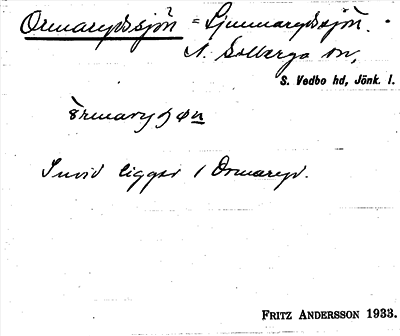 Ormarydssjön = Ljunnarydssjön.
N. Solberga sn,
S. Vedbo hd, Jönk. l.
Invid ligger 1 Ormaryd.
FRITZ ANDERSSON 1933.